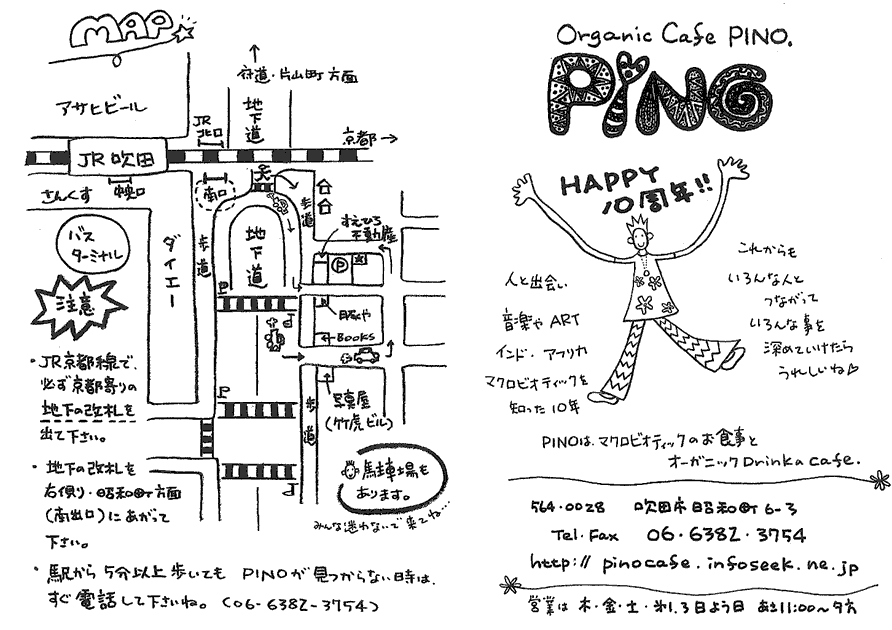 MAP
府道・片山町方面
アサヒビール
地下道
JR北口
京都→
JR吹田
中央口
南口
さんくす
バスターミナル
ダイエー
歩道
地下道
歩道
すえひろ不動産
P
注意
服や
←BOOKS
写真屋
(竹虎ビル)
歩道
・JR京都線で、
必ず京都寄りの
地下の改札を
出て下さい。
・地下の改札を
右側り・昭和町方面
(南出口)にあがって
下さい。
馬主車場も
あります。
みんな迷わないで来てね…
・駅から5分以上歩いても PINOが見つからない日時は、
すぐ電話して下さいね。(06-6382-3754)
Organic Cafe PINO.
PiNO
HAPPY
10周年!!
人と出会い
音楽やART
インド・アフリカ
マクロビオティックを
知った10年
これからも
いろんな人と
つながって
いろんな事を
深めていけたら
うれしいね♡
PINOは、マクロビオティックのお食事と
オーガニックDrinkのcafe.
564・0028 吹田市昭和町6-3
Tel・Fax 06・6382・3754
http://pinocafe.infoseek.ne.jp
営業は 木・金・土・第1.3日よう日 あさ11:00〜夕方